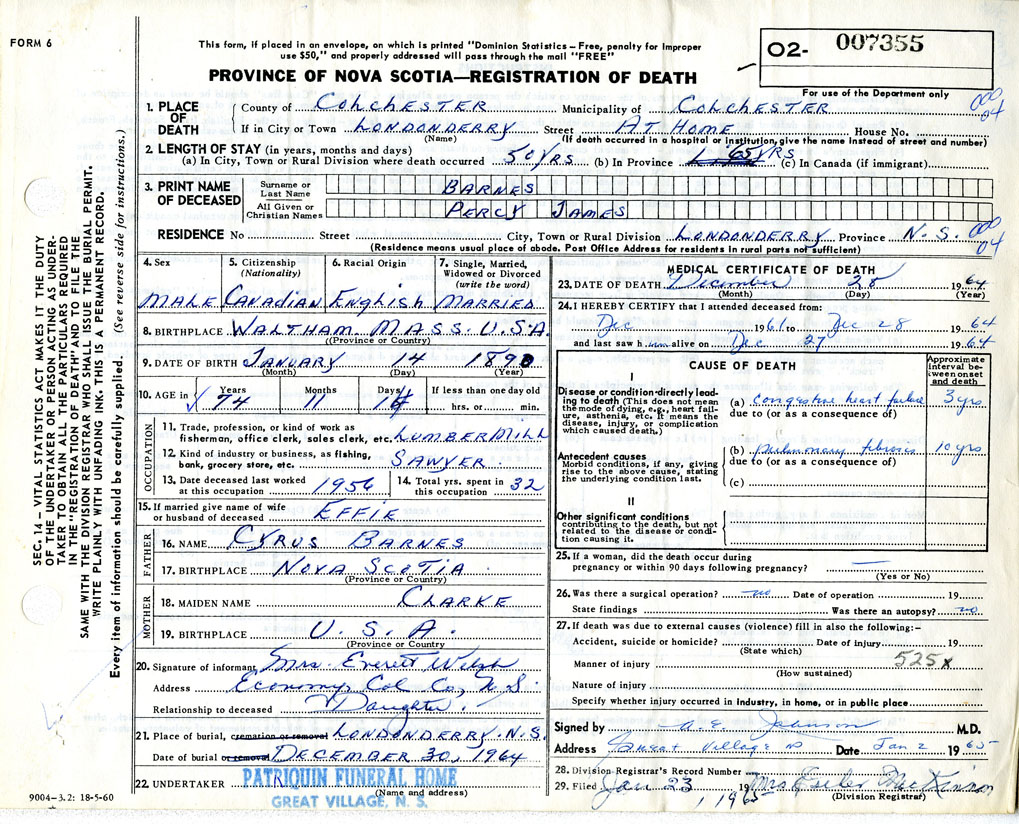 FORM 6
This form, if placed in an envelope, on which is printed "Dominion Statistics – Free, penalty for improper
use $50," and properly addressed will pass through the mail "FREE"
O2- 007355
For use of the Department only
PROVINCE OF NOVA SCOTIA—REGISTRATION OF DEATH
SEC. 14 – VITAL STATISTICS ACT MAKES IT THE DUTY
OF THE UNDERTAKER OR PERSON ACTING AS UNDER-
TAKER TO OBTAIN ALL THE PARTICULARS REQUIRED
IN THE "REGISTRATION OF DEATH" AND TO FILE THE
SAME WITH THE DIVISION REGISTRAR WHO SHALL ISSUE THE BURIAL PERMIT.
WRITE PLAINLY WITH UNFADING INK. THIS IS A PERMANENT RECORD.
Every item of information should be carefully supplied. (See reverse side for instructions.)
1. PLACE OF DEATH
County of COLCHESTER Municipality of COLCHESTER
000 04
If in City or Town LONDONDERRY Street AT HOME House No.
(Name) (If death occurred in a hospital or institution, give the name instead of street and number)
2. LENGTH OF STAY (in years, months and days)
(a) In City, Town or Rural Division where death occurred 50 YRS (b) In Province 65 YRS (c) In Canada (if immigrant)
3. PRINT NAME OF DECEASED
Surname or Last Name BARNES
All Given or Christian Names PERCY JAMES
RESIDENCE No Street City, Town or Rural Division LONDONDERRY Province N.S. 000 04
(Residence means usual place of abode. Post Office Address for residents in rural parts not sufficient)
4. Sex 5. Citizenship (Nationality) 6. Racial Origin 7. Single, Married, Widowed or Divorced (write the word)
MALE CANADIAN ENGLISH MARRIED
8. BIRTHPLACE WALTHAM MASS. U.S.A.
((Province or Country)
9. DATE OF BIRTH JANUARY 14 1890
(Month) (Day) (Year)
10. AGE in Years Months Days If less than one day old
74 11 14 hrs. or min.
OCCUPATION
11. Trade, profession, or kind of work as
fisherman, office clerk, sales clerk, etc. LUMBERMILL
12. Kind of industry or business, as fishing,
bank, grocery store, etc. SAWYER
13. Date deceased last worked at this occupation 1956 14. Total yrs. spent in this occupation 32
15. If married give name of wife
or husband of deceased EFFIE
FATHER
16. NAME CYRUS BARNES
17. BIRTHPLACE NOVA SCOTIA
(Province or Country)
MOTHER
18. MAIDEN NAME CLARKE
19. BIRTHPLACE U.S.A.
(Province or Country
20. Signature of informant Mrs. Everett Welsh
Address Economy, Col Co, N.S.
Relationship to deceased Daughter.
21. Place of burial, cremation or removal LONDONDERRY. N.S.
Date of burial or removal DECEMBER 30, 1964
22. UNDERTAKER PATRIQUIN FUNERAL HOME
(Name and address)
GREAT VILLAGE, N. S.
9004–3.2: 18-5-60
MEDICAL CERTIFICATE OF DEATH
23. DATE OF DEATH December 28 1964
(Month) (Day) (Year)
24. I HEREBY CERTIFY that I attended deceased from:
Dec 1961 to Dec 28 1964
and last saw him alive on Dec 27 1964
CAUSE OF DEATH
Approximate interval between onset and death
I
Disease or condition directly leading to death (This does not mean
the mode of dying, e.g., heart failure, asthenia, etc. It means the
disease, injury, or complication which caused death.)
(a) congestive heart failure 3 yrs
due to (or as a consequence of)
Antecedent causes
Morbid conditions, if any, giving rise to the above cause, stating
the underlying condition last.
(b) pulmonary fibrosis 10 yrs
due to (or as a consequence of)
(c)
II
Other significant conditions
contributing to the death, but not related to the disease or condition causing it.
25. If a woman, did the death occur during
pregnancy or within 90 days following pregnancy? —
(Yes or No)
26. Was there a surgical operation? no Date of operation 19
State findings Was there an autopsy? no
27. If death was due to external causes (violence) fill in also the following:–
Accident, suicide or homicide? Date of injury 19
(State which)
Manner of injury 525x
(How sustained)
Nature of injury
Specify whether injury occurred in industry, in home, or in public place
Signed by A E Johnson M.D.
Address Great Village NS Date Jan 2 1965
28. Division Registrar's Record Number
29. Filed Jan 23, 1965 Mrs Ester MacKinnon
(Division Registrar)